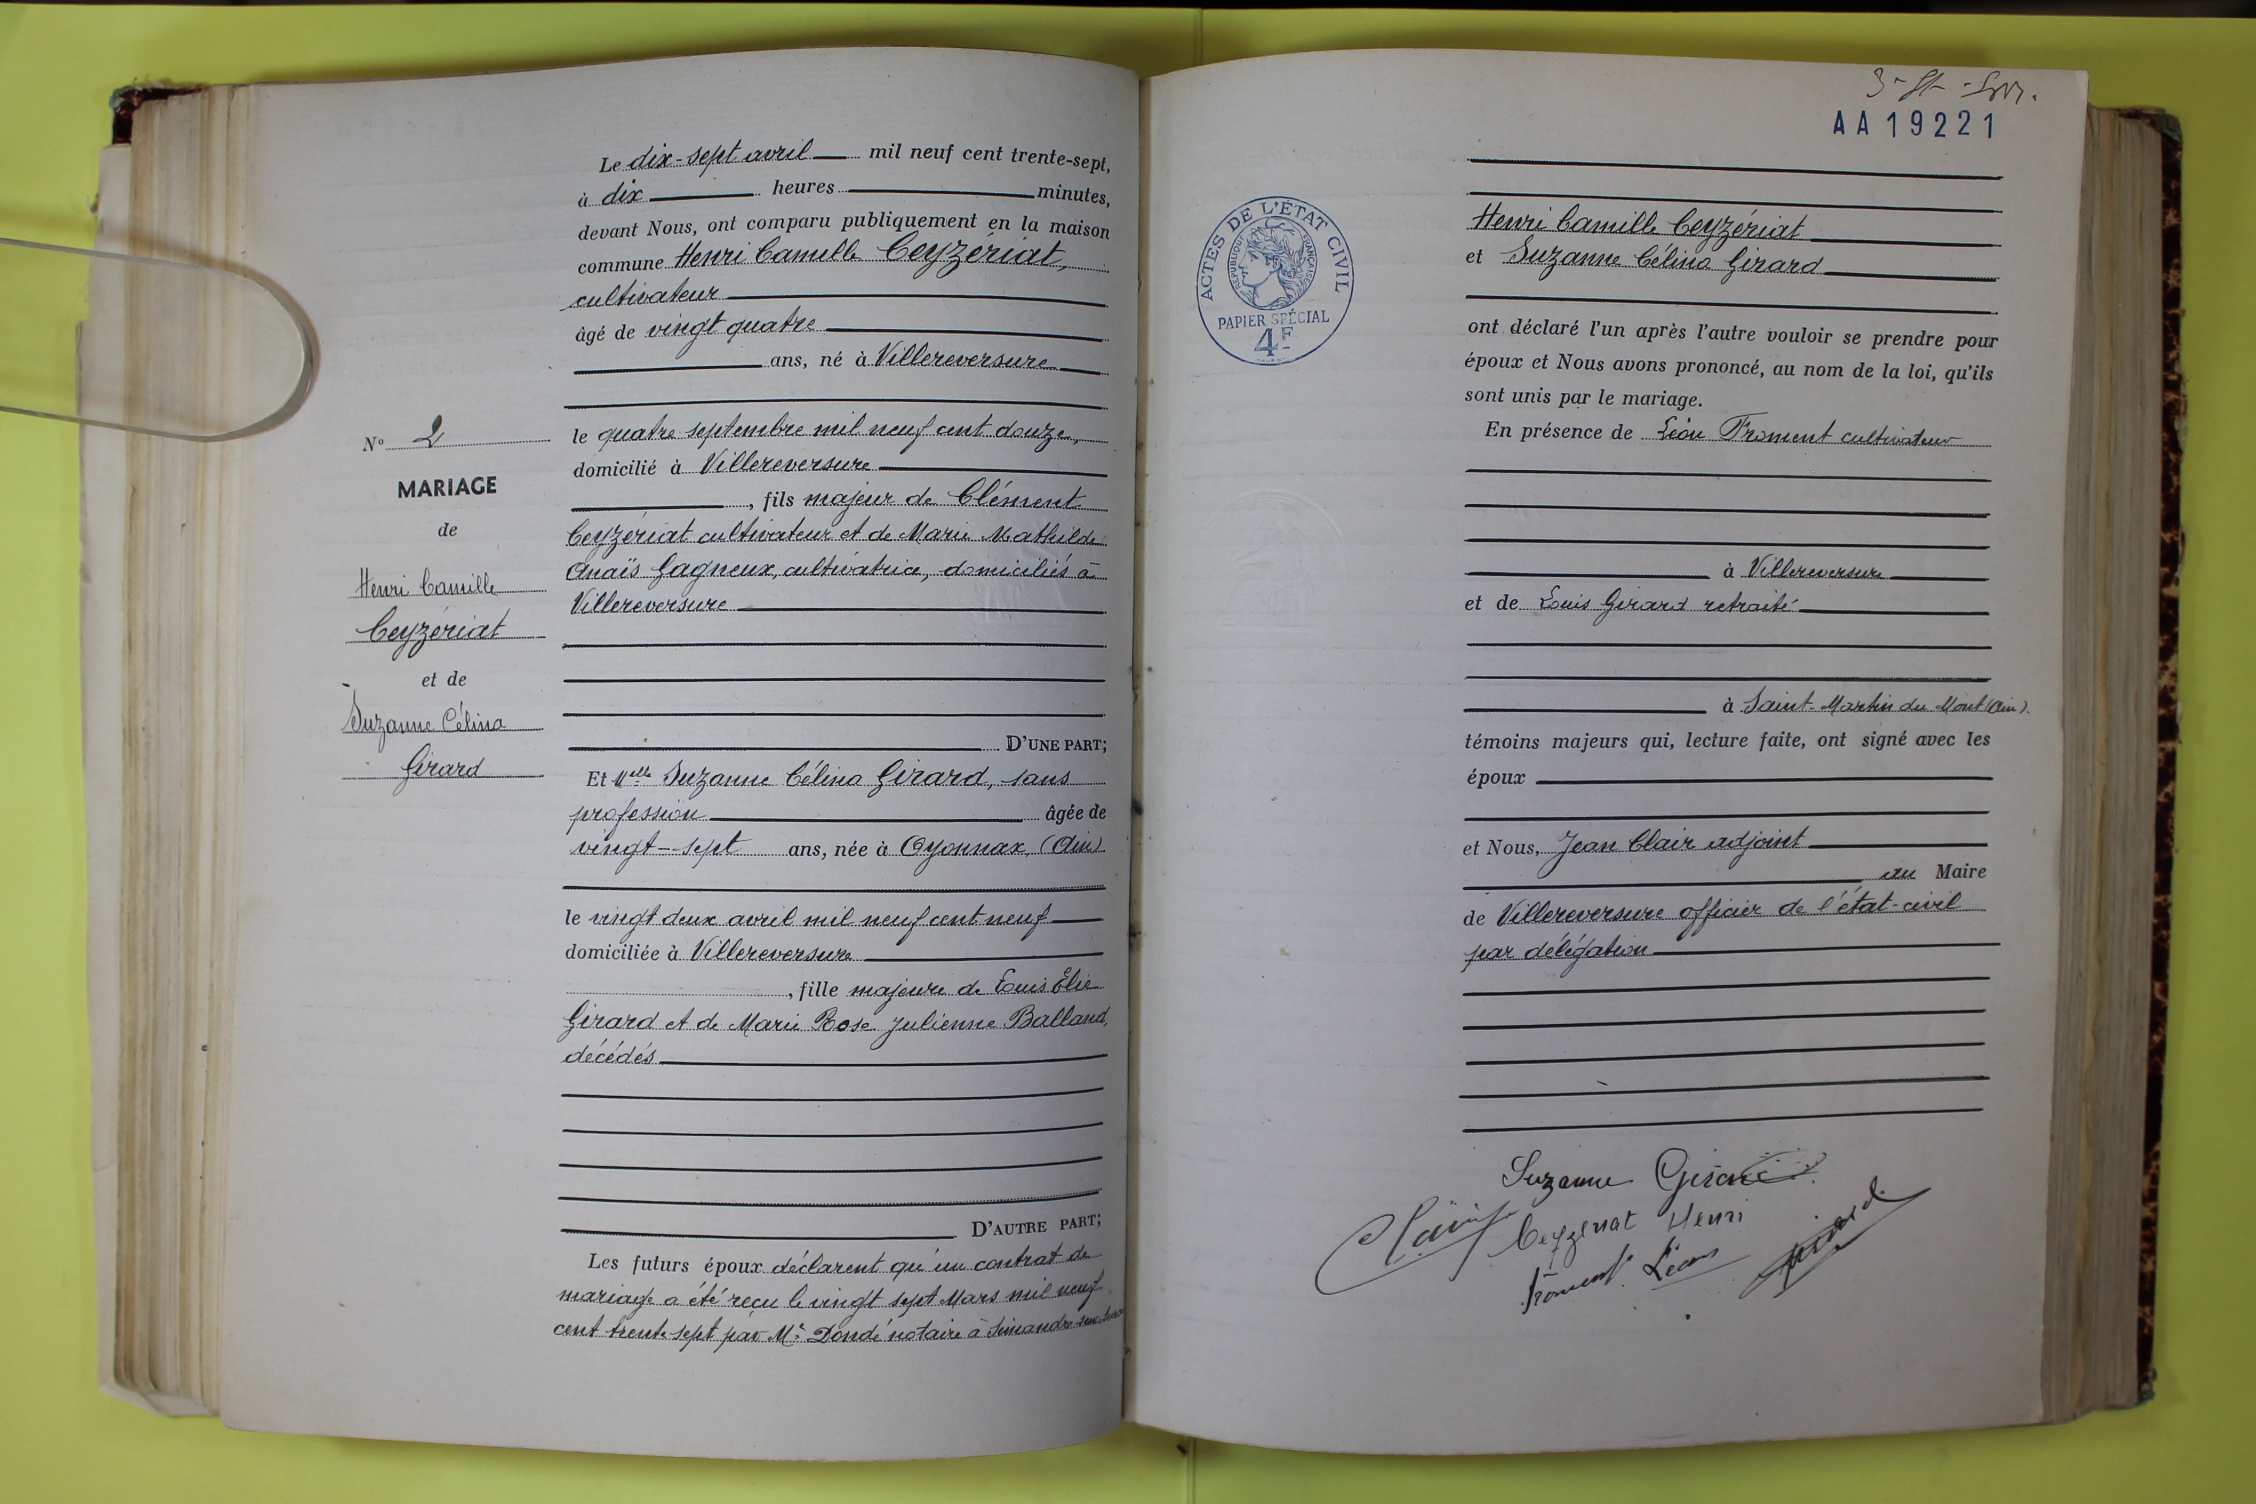 Le dix-sept avril mil neuf cent trente-sept,
à dix heures minutes,
devant Nous, ont comparu publiquement en la maison
commune Henri Camille Ceyzériat,
cultivateur
âgé de vingt quatre
ans, né à Villereversure
le quatre septembre mil neuf cent douze,
domicilié à Villereversure
, fils majeur de Clément
Ceyzériat cultivateur et de Marie Mathilde
Anaïs Gagneux, cultivatrice, domiciliés à
Villereversure
D'UNE PART;
Et Melle Suzanne Célina Girard, sans
profession âgée de
vingt-sept ans, née à Oyonnax, (Ain)
le vingt deux avril mil neuf cent neuf
domiciliée à Villereversure
, fille majeure de Louis Elie
Girard et de Marie Rose Julienne Balland,
décédés
D'AUTRE PART;
Les futurs époux déclarent qu'un contrat de
mariage a été reçu le vingt sept Mars mil neuf
cent trente sept par Me Dondé notaire à Simandre-sur-Suran
N° 2
MARIAGE
de
Henri Camille
Ceyzériat
et de
Suzanne Célina
Girard
AA19221
ACTES DE L'ÉTAT CIVIL
RÉPUBLIQUE FRANÇAISE
PAPIER SPÉCIAL
4F
Henri Camille Ceyzériat
et Suzanne Célina Girard
ont déclaré l'un après l'autre vouloir se prendre pour
époux et Nous avons prononcé, au nom de la loi, qu'ils
sont unis par le mariage.
En présence de Léon Froment cultivateur
à Villereversure
et de Louis Girard retraité
à Saint-Martin du Mont (Ain).
témoins majeurs qui, lecture faite, ont signé avec les
époux
et Nous, Jean Clair adjoint
au Maire
de Villereversure officier de l'état-civil
par délégation
Suzanne Girard
Clair
Ceyzeriat Henri
Froment Léon
Girard